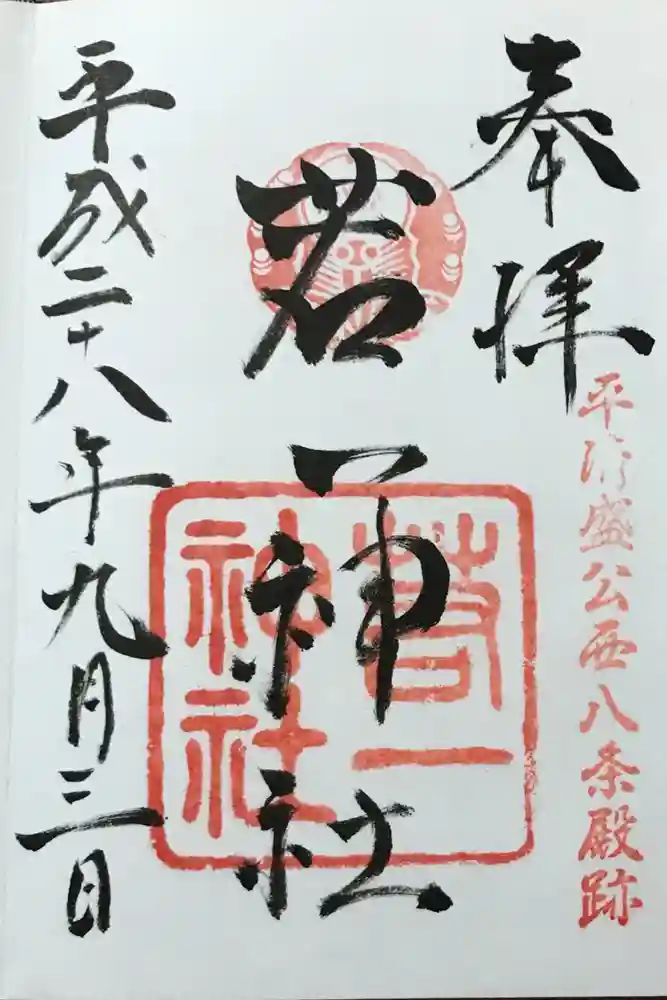 奉拝
平清盛公西八条殿跡
若一神社
若一
神社
平成二十八年九月三日